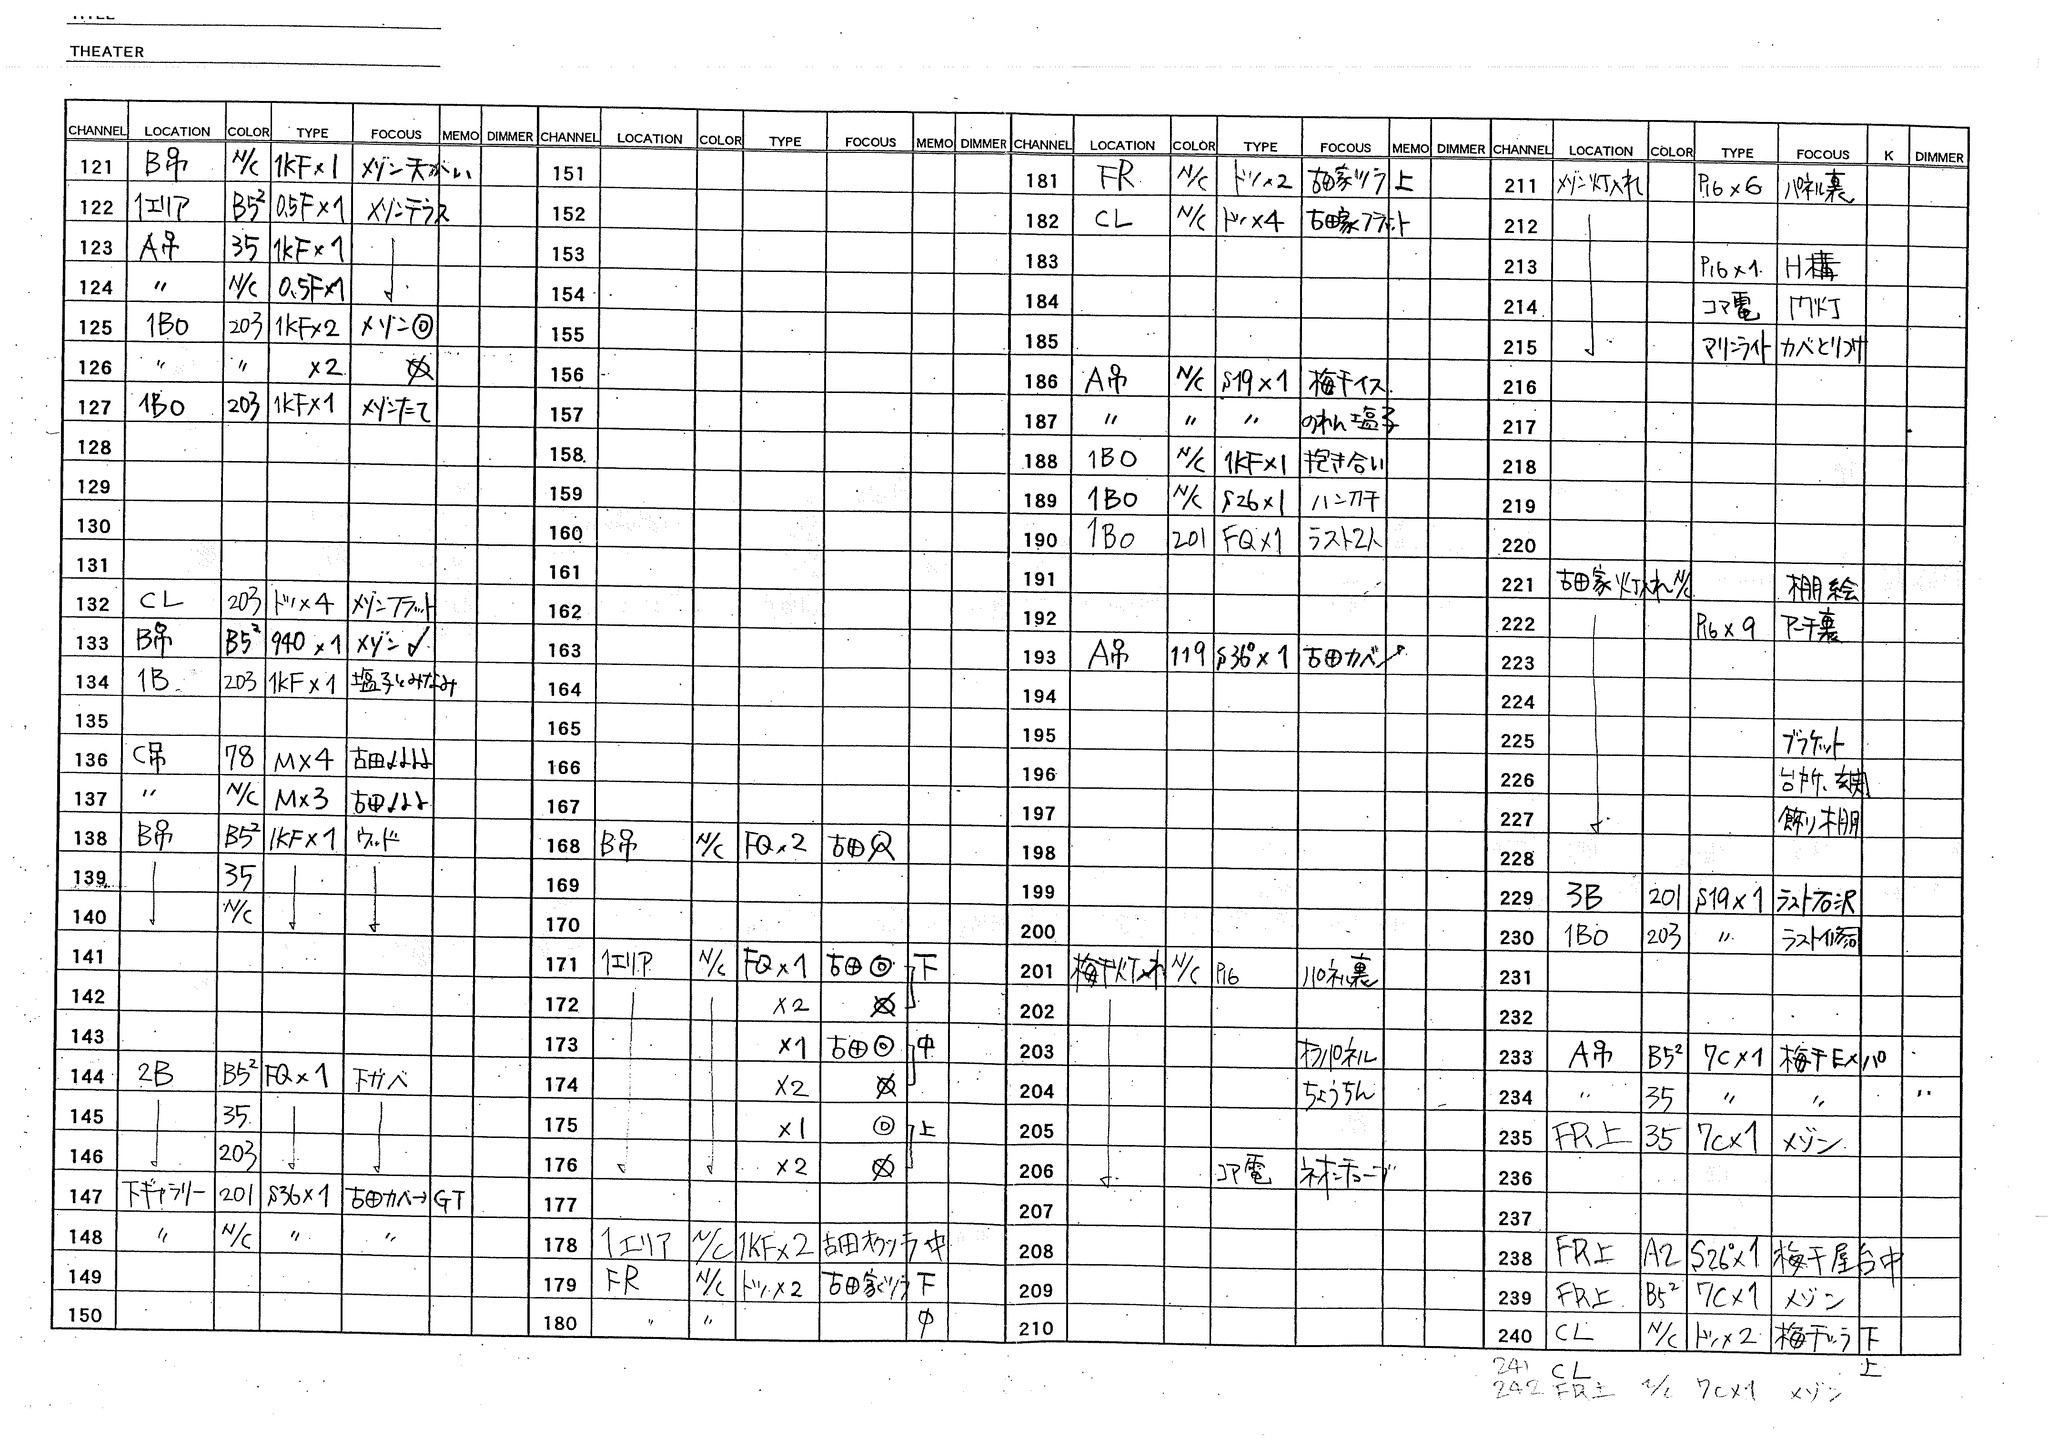 THEATER
CHANNEL LOCATION COLOR TYPE FOCOUS MEMO DIMMER
121 B吊 N/C 1KF×1 メゾン天がい
122 1エリア B5² 0.5F×1 メゾンテラス
123 A吊 35 1KF×1
124 〃 N/C 0.5F×1
125 1BO 203 1KF×2 メゾン◎
126 〃 〃 ×2
127 1BO 203 1KF×1 メゾンたて
128
129
130
131
132 CL 203 ドリ×4 メゾンフラット
133 B吊 B5² 940×1 メゾン
134 1B 203 1KF×1 塩子とみなみ
135
136 C吊 78 M×4 古田
137 〃 N/C M×3 古田
138 B吊 B5² 1KF×1 ウッド
139 35
140 N/C
141
142
143
144 2B B5² FQ×1 下カベ
145 35
146 203
147 下ギャラリー 201 S36×1 古田カベ→GT
148 〃 N/C 〃 〃
149
150
CHANNEL LOCATION COLOR TYPE FOCOUS MEMO DIMMER
151
152
153
154
155
156
157
158
159
160
161
162
163
164
165
166
167
168 B吊 N/C FQ×2 古田
169
170
171 1エリア N/C FQ×1 古田◎ 下
172 ×2
173 ×1 古田◎ 中
174 ×2
175 ×1 ◎ 上
176 ×2
177
178 1エリア N/C 1KF×2 古田オクツラ 中
179 FR N/C ドリ×2 古田家ツラ 下
180 〃 〃 中
CHANNEL LOCATION COLOR TYPE FOCOUS MEMO DIMMER
181 FR N/C ドリ×2 古田家ツラ 上
182 CL N/C ドリ×4 古田家フラット
183
184
185
186 A吊 N/C S19×1 梅干イス
187 〃 〃 〃 のれん塩子
188 1BO N/C 1KF×1 抱き合い
189 1BO N/C S26×1 ハンカチ
190 1BO 201 FQ×1 ラスト2人
191
192
193 A吊 119 S36°×1 古田カベ
194
195
196
197
198
199
200
201 梅干灯入れ N/C P16 パネル裏
202
203 オクパネル
204 ちょうちん
205
206 コマ電 ネオンチューブ
207
208
209
210
CHANNEL LOCATION COLOR TYPE FOCOUS K DIMMER
211 メゾン灯入れ P16×6 パネル裏
212
213 P16×1 H構
214 コマ電 門灯
215 マリンライト カベとりつけ
216
217
218
219
220
221 古田家灯入れ N/C 棚絵
222 P16×9 アーチ裏
223
224
225 ブラケット
226 台所、玄関
227 飾り棚
228
229 3B 201 S19×1 ラスト石沢
230 1BO 203 〃 ラスト修司
231
232
233 A吊 B5² 7C×1 梅干EXパロ
234 〃 35 〃 〃 〃
235 FR上 35 7C×1 メゾン
236
237
238 FR上 A2 S26°×1 梅干屋台中
239 FR上 B5² 7C×1 メゾン
240 CL N/C ドリ×2 梅干ヅラ 下
241 CL 上
242 FR上 N/C 7C×1 メゾン